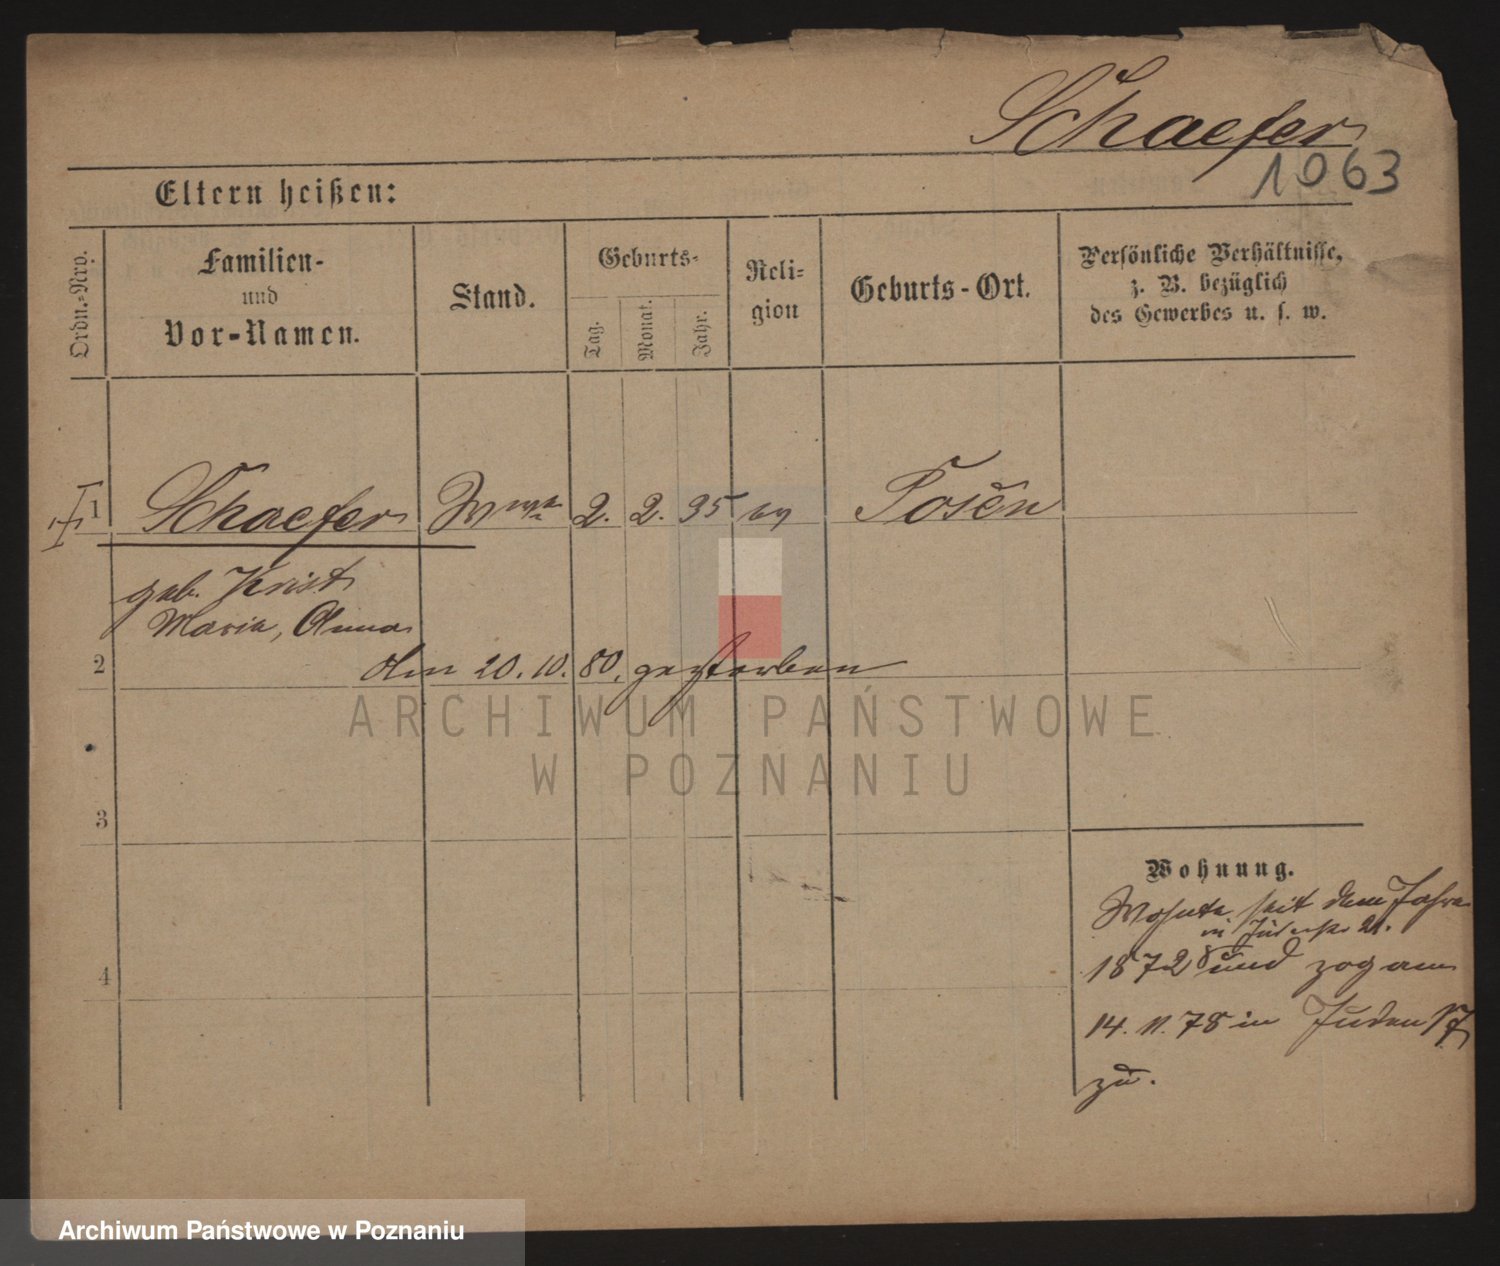 Schaefer
1063
Eltern heißen:
Ordn.-Nro.
Familien-
und
Vor-Namen.
Stand.
Geburts-
Tag.
Monat.
Jahr.
Reli-
gion
Geburts-Ort.
Persönliche Verhältnisse,
z. B. bezüglich
des Gewerbes u. s. w.
1 Schaefer Wwe 2. 2. 95 ev Posen
geb. Krist
Maria, Anna
2 den 20. 10. 80. gestorben
ARCHIWUM PAŃSTWOWE
W POZNANIU
3
Wohnung.
Wohnte seit dem Jahre
in 21.
1872 und zog am
4
14. 11. 78 in Juden
zu.
Archiwum Państwowe w Poznaniu